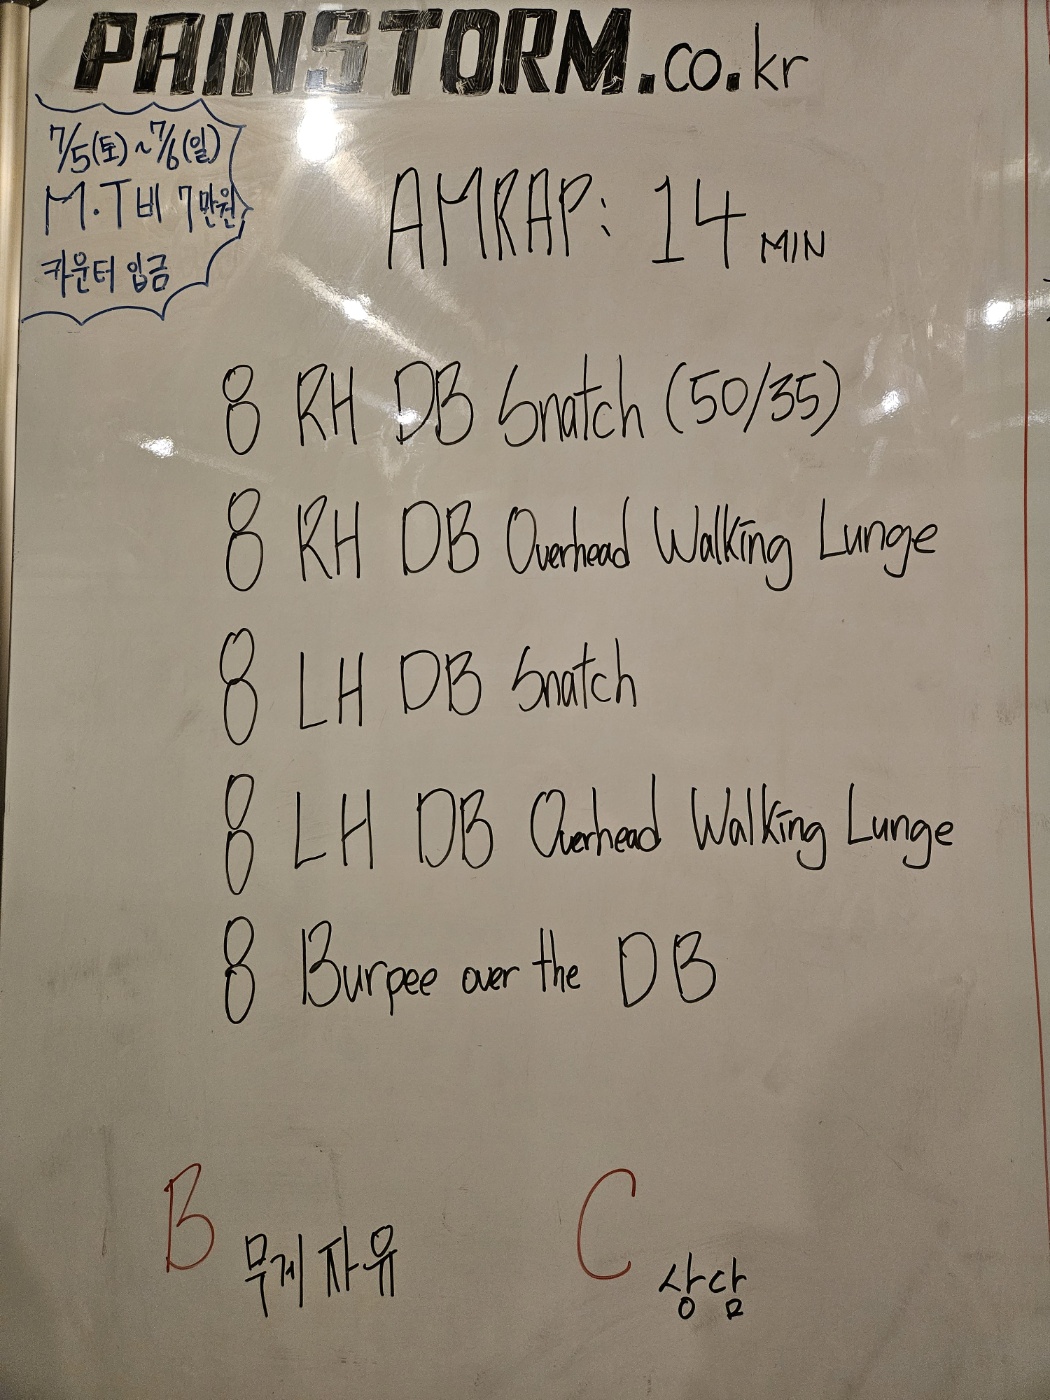 PAINSTORM.co.kr
7/5(토)~7/6(일)
M.T비 7만원
카운터 입금
AMRAP: 14 MIN
8 RH DB Snatch (50/35)
8 RH DB Overhead Walking Lunge
8 LH DB Snatch
8 LH DB Overhead Walking Lunge
8 Burpee over the DB
B 무게 자유
C 상담